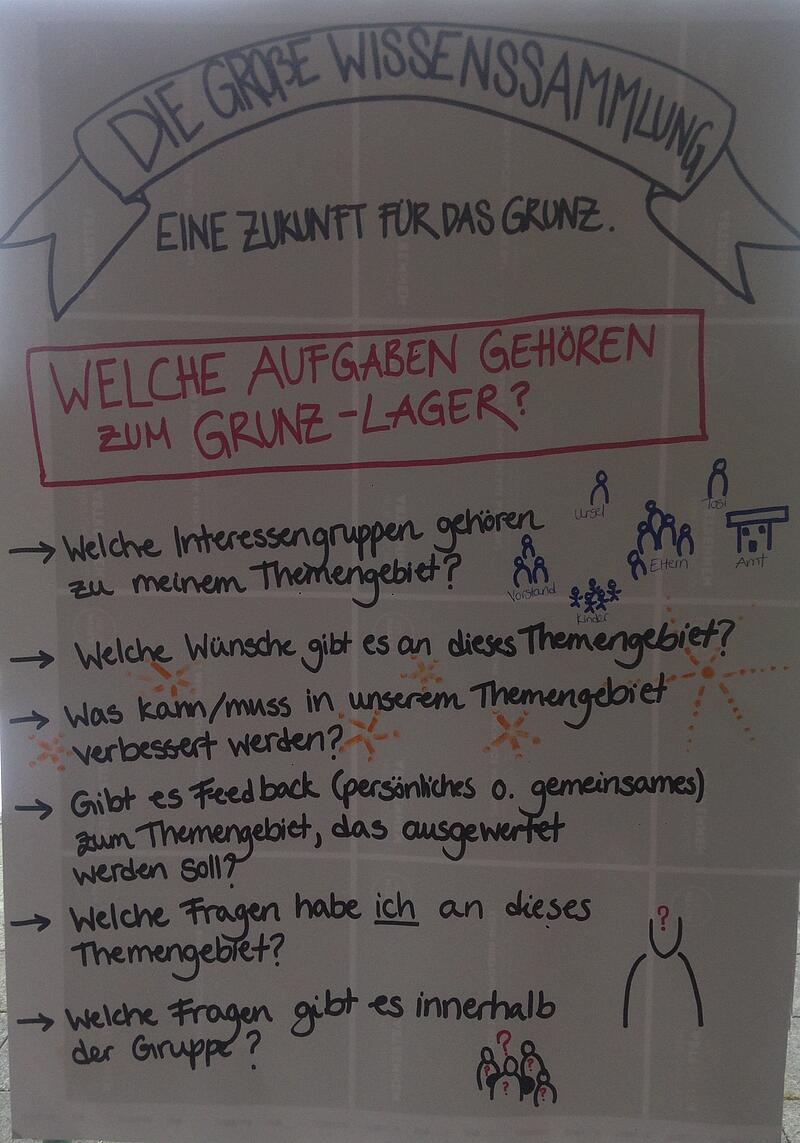 DIE GROßE WISSENSSAMMLUNG
EINE ZUKUNFT FÜR DAS GRUNZ.
WELCHE AUFGABEN GEHÖREN
ZUM GRUNZ-LAGER?
→ Welche Interessengruppen gehören
zu meinem Themengebiet?
Ursel
Tosi
Vorstand
Eltern
Amt
Kinder
→ Welche Wünsche gibt es an dieses Themengebiet?
→ Was kann/muss in unserem Themengebiet
verbessert werden?
→ Gibt es Feedback (persönliches o. gemeinsames)
zum Themengebiet, das ausgewertet
werden soll?
→ Welche Fragen habe ich an dieses
Themengebiet?
?
→ Welche Fragen gibt es innerhalb
der Gruppe?
?
? ? ? ?